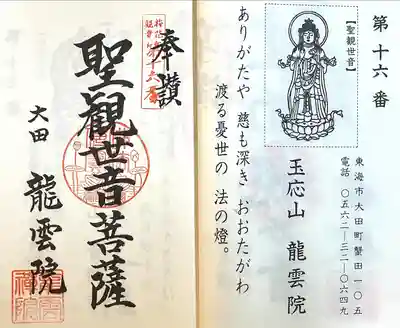 第十六番
【聖観世音】
玉応山 龍雲院
東海市大田町蟹田一〇五
電話 〇五六二―三二―〇六四九
ありがたや 慈も深き おおたがわ
渡る憂世の 法の燈。
奉讃
聖観世音菩薩
大田 龍雲院